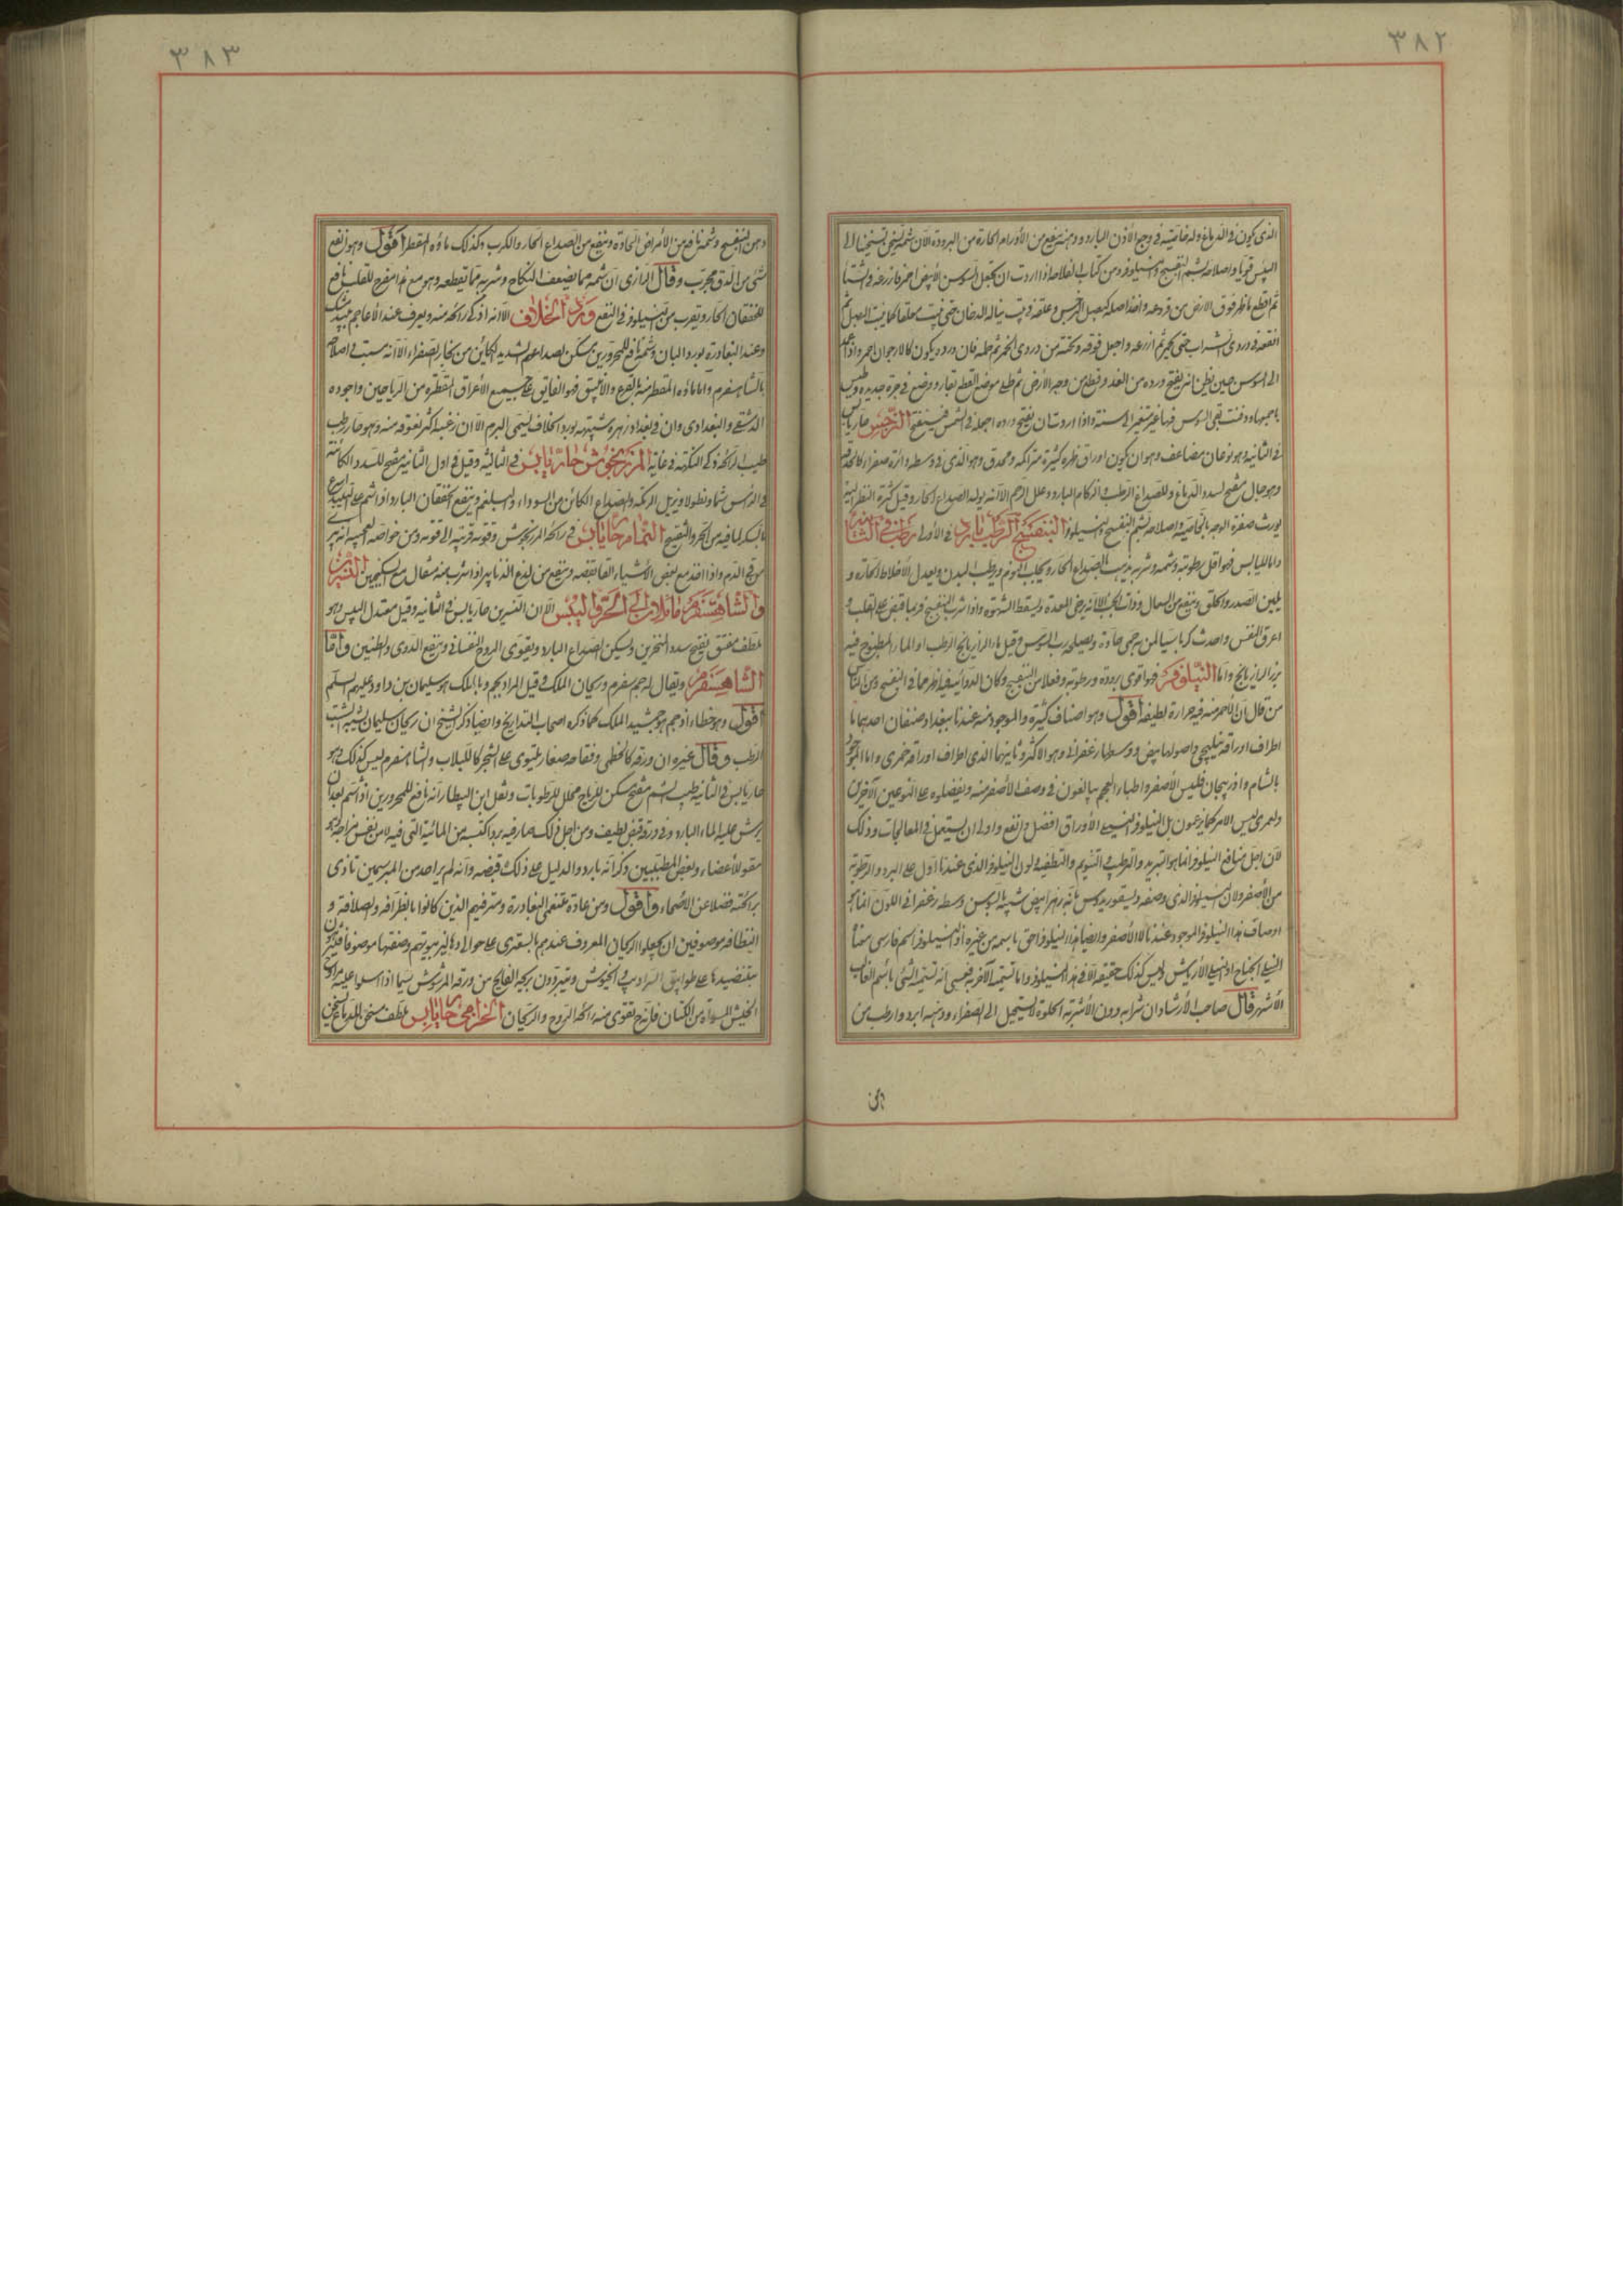 ٣٨٢
الذى يكون فى الدماغ وله خاصية فى وجع الأذن البارد ودهنه ينفع من الأورام الحارة من البرودة الا ان شمه يسخن تسخينا الى
اليبس قويا واصلاحه بشم البنفسج والنيلوفر ومن كتاب الفلاحة اذا اردت ان تجعل السوسن الأبيض احمر فازرعه فى الشتا
ثم اقطع ما ظهر فوق الارض من فروعه وخذ اصله كبصل النرجس وعلقه فى بيت يناله الدخان حتى ينبت معلقا كما ينبت البصل ثم
انقعه فى دردى الشراب حتى يحمر ثم ازرعه واجعل فوقه وتحته من دردى الخمر ثم حله فان ورده يكون كالارجوان احمر واذا عمد
الى السوسن حين يظن انه يفتح ورده من الغد وقطع من وجه الأرض ثم طلى موضع القطع بقار ووضع فى جرة جديدة وطين
باجمعها ودفنت بقى السوسن فيها غير متغير الى سنة واذا اردت ان يفتح ورده اجعله فى الشمس فيفتح النرجس حار يابس
فى الثانية وهو نوعان مضاعف وهو ان يكون اوراق زهره كثيرة متراكمة ومحدق وهو الذى فى وسطه دائرة صفراء كالحدقة
وهو جال مفتح لسدد الدماغ وللصداع الرطب والزكام البارد وعلل الرحم الا انه يولد الصداع الحار وقيل كثرة النظر اليه
يورث صفرة الوجه بالخاصية واصلاحه بشم البنفسج والنيلوفر البنفسج الرطب بارد فى الأولى رطب فى الثانية
واما اليابس فهو اقل رطوبته وشمه وشربه يذهب الصداع الحار ويجلب النوم ويرطب البدن ويعدل الأخلاط الحارة و
يلين الصدر والحلق وينفع من السعال وذات الجنب الا انه يرخى المعدة ويسقط الشهوة واذا شرب البنفسج فربما قبض على القلب و
اعرق النفس واحدث كربا سيما لمن به حمى حادة ويصلحه رب السوس وقيل ماء الرازيانج الرطب او الماء المطبوخ فيه
بزر الرازيانج واما النيلوفر فهو اقوى برودة ورطوبة وفعلا من البنفسج وكان الدوائية فيه اظهر مما فى البنفسج ومن الناس
من قال ان الأحمر منه فيه حرارة لطيفة اقول وهو اصناف كثيرة والموجود منه عندنا ببغداد صنفان احدهما ما
اطراف اوراقه نيلنجى واصولها بيض ووسطها زعفرانى وهو الاكثر وثانيهما الذى اطراف اوراقه خمرى واما الموجود
بالشام واذربيجان فليس الأصفر واطباء العجم يبالغون فى وصف الأصفر منه ويفضلوه على النوعين الآخرين
ولعمرى ليس الامر كما يزعمون بل النيلوفر النيلى الأوراق افضل وانفع واولى ان يستعمل فى المعالجات وذلك
لان اجل منافع النيلوفر انما هو التبريد والترطيب والتنويم والتطفية ولون النيلوفر الذى عندنا ادل على البرد والرطوبة
من الأصفر ولان النيلوفر الذى وصفه ديسقوريدوس بانه زهر ابيض شبيه بالسوسن وسطه زعفرانى اللون انما هو
اوصاف هذا النيلوفر الموجود عندنا لا الأصفر وايضا هذا النيلوفر احق باسمه من غيره اذ النيلوفر اسم فارسى معناه
النيلى الجناح او النيلى الأرياش وليس كذلك حقيقة الا فى هذا النيلوفر واما تسمية الآخر به فعسى انه تسمية الشئ باسم الغالب
الأشهر قال صاحب الأرشاد ان شرابه دون الأشربة الحلوة لا يستحيل الى الصفراء ودهنه ابرد وارطب من
دهن
٣٨٣
دهن البنفسج وشمه نافع من الأمراض الحادة وينفع من الصداع الحار والكرب وكذلك ماؤه المقطر اقول وهو انفع
شئ من الدق مجرب وقال الرازى ان شمه مما يضعف النكاح وشربه مما يقطعه وهو مع هذا مفرح للقلب نافع
للخفقان الحار ويقرب من النيلوفر فى النفع ورد الخلاف الا انه اذكى رائحة منه ويعرف عند الأعاجم ببيدمشك
وعند البغاددة بورد البان وشمه نافع للمحرورين مسكن لصداعهم الشديد الكائن من بخار الصفراء الا انه سبب فى اصلاحه
بالشاهسفرم واما ماؤه المقطر منه بالقرع والانبيق فهو الفايق على جميع الأعراق المقطرة من الرياحين واجوده
الدمشقى والبغدادى وان فى بغداد زهرة شبيهة بورد الخلاف ليسمى البرم الا ان زغبه اكثر نعومة منه وهو حار رطب
طيب الرائحة ذكى النكهة فى غاية المرزنجوش حار يابس فى الثالثة وقيل فى اول الثانية مفتح للسدد الكائنة
فى الرأس شما ونطولا ويزيل الزكمة والصداع الكائن من السوداء والبلغم وينفع الخفقان البارد واذا شم على النبيذ اسرع
بالسكر لما فيه من الحر والتفتيح النمام حار يابس فى رائحة المرزنجوش وقوته قريبة الى قوته ومن خواصه العجيبة انه يبرئ
من قئ الدم واذا اخذ مع بعض الأشياء القابضة وينفع من لذع الدنابير اذا شرب منه مثقال مع السكنجبين النسرين
والشاهسفرم مائلان الى الحر واليبس الا ان النسرين حار يابس فى الثانية وقيل معتدل اليبس وهو
ملطف مفتق يفتح سدد المنخرين ويسكن الصداع البارد ويقوى الروح النفسانى وينفع الدوى والطنين واما
الشاهسفرم ويقال له جم سفرم وريحان الملك وقيل المراد بجم وبالملك هو سليمان بن داود عليهم السلم
اقول وهو خطاء اذ جم هو جمشيد الملك كما ذكره اصحاب التواريخ وايضا ذكر الشيخ ان ريحان سليمان يشبه الشبت
الرطب وقال غيره ان ورقه كالخطمى وفقاحه صغار يلتوى على الشجر كاللبلاب والشاهسفرم ليس كذلك وهو
حار يابس فى الثانية طيب الشم مفتح مسكن للرياح محلل للرطوبات ونقل ابن البيطار انه نافع للمحرورين اذا شم بعد ان
يرش عليه الماء البارد وفى ورقه قبض لطيف ومن اجل ذلك صار فيه بردا اكتسبه من المائية التى فيه لا من نفس مزاجه وهو
مقو للأعضاء وبعض المطببين ذكر انه بارد والدليل على ذلك قبضه وانه لم ير احد من المبرسمين تاذى
برائحته فضلا عن الاصحاء واقول ومن عادة متنعمى البغاددة ومترفيهم الذين كانوا بالظرافة والصلافة و
النظافة موصوفين ان يجعلوا الريحان المعروف عندهم بالسعترى على حوالى دهاليز بيوتهم وصفتها موصوفا فيتركون
بتنضيدها على طوابيق السراديب والخيوش ويتبردون بريحه الفايح من ورقه المرشوش سيما اذا اسبلوا عليه مراوح
الخيش المسواة من الكتان فانه ح تقوى منه رائحة الروح والريحان الخزامى حار يابس ملطف مسخن للدماغ